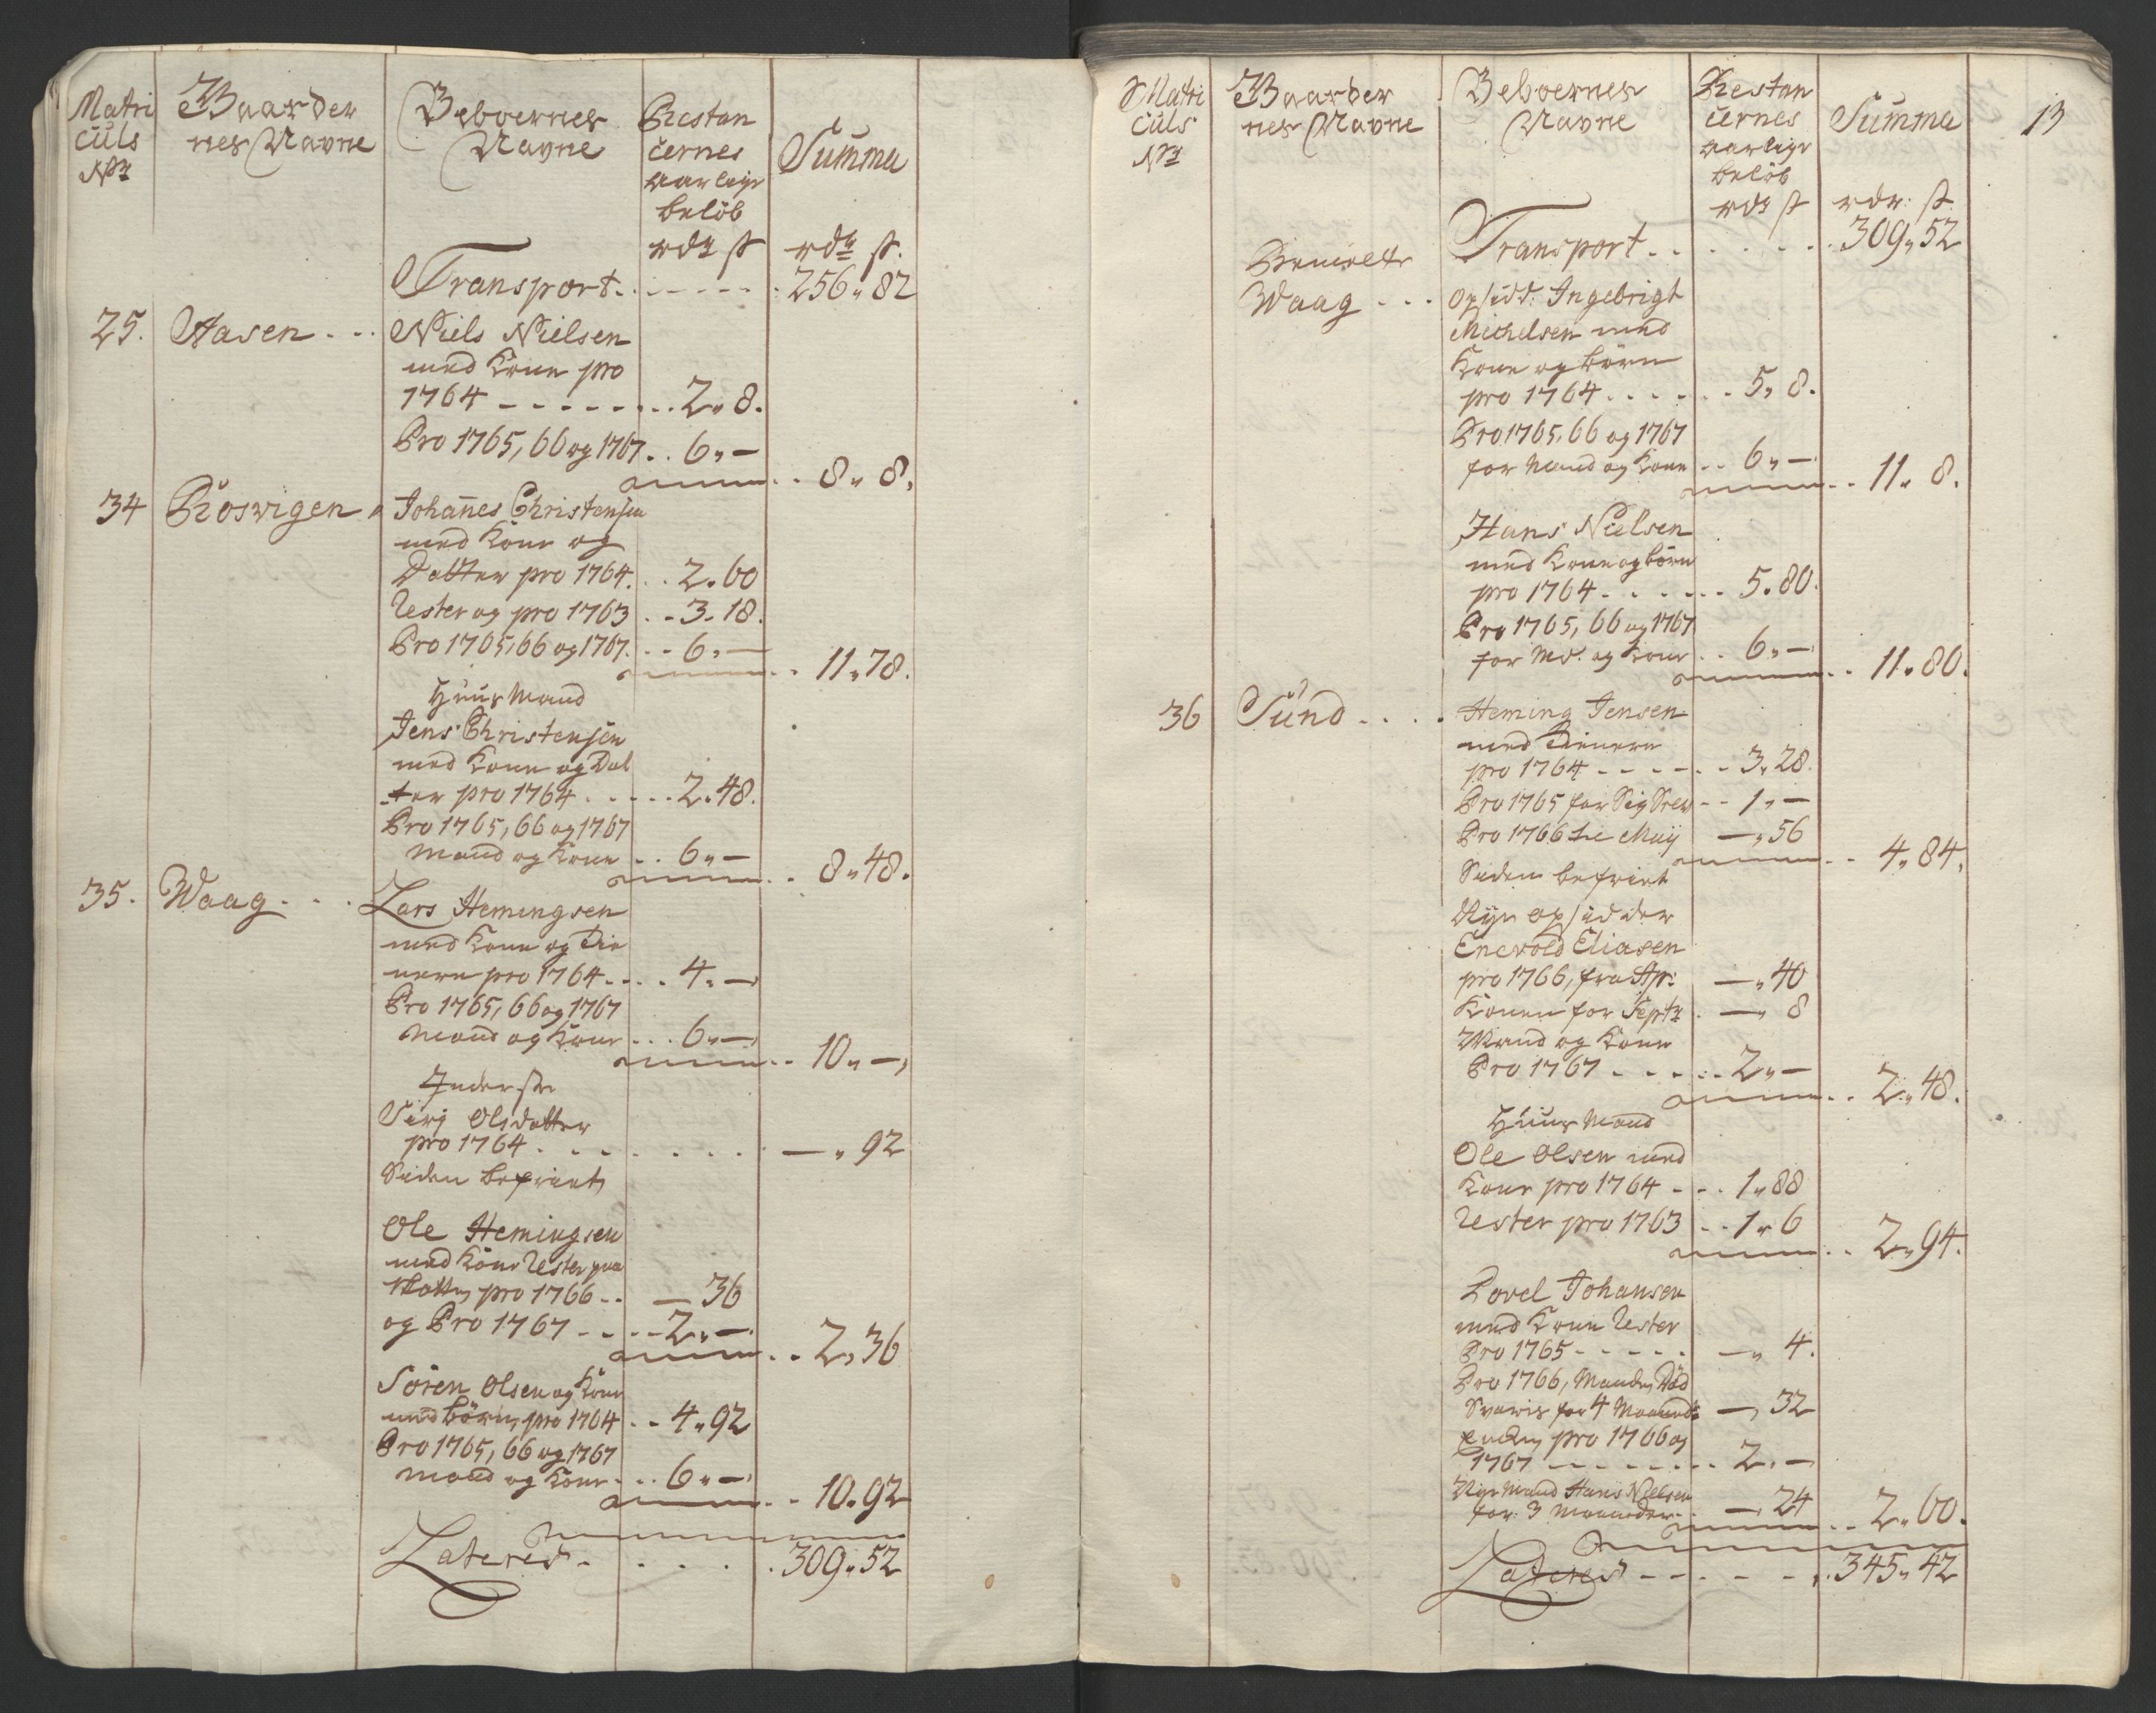 Matri
culs
Nr
Gaarder
nes Navne
Beboernes
Navne
Restan
cernes
aarlige
beløb
rdr ß
Summa
rdr ß.
Transport . . . . . 256 " 82
25. Aasen . . . Niels Nielsen
med Kone pro
1764 . . . . . 2 " 8.
Pro 1765, 66 og 1767 . . 6 " —
8 " 8.
34 Rosvigen " Johañes Christensen
med Kone og
Datter pro 1764. . . 2 " 60
Rester og pro 1763 . . 3 " 18.
Pro 1765, 66 og 1767. . . 6 " —
11 " 78.
Huus Mand
Jens Christensen
med Kone og Dat
ter pro 1764 . . . . 2 " 48.
Pro 1765, 66 og 1767
Mand og Kone . . 6 " —
8 " 48.
35. Waag . . . Lars Hemingsen
med Kone og Tie
nere pro 1764 . . . . 4 " —
Pro 1765, 66 og 1767
Mand og Kone . . . 6 " —
10 " —
Inderste
Siri Olsdatter
pro 1764 . . . . . . — " 92
Siden befriet
Ole Hemingsen
med Kone Rester paa
Skatten pro 1766 . . — 36
og Pro 1767 . . . . 2 " —
2 " 36
Søren Olsen og Kone
med børn, pro 1764 . . 4 " 92
Pro 1765, 66 og 1767
Mand og Kone . . . 6 " —
10 " 92
Lateres . . . . . 309 " 52
Matri
culs
Nr
Gaarder
nes Navne
Beboernes
Navne
Restan
cernes
aarlige
beløb
rdr ß
Summa
rdr: ß.
13
Transport . . . . . . 309 " 52
Waag . . . Opsidd: Ingebrigt
Michelsen med
Kone og børn
pro 1764 . . . . . 5 " 8.
Pro 1765, 66 og 1767
for Mand og Kone . . 6 " —
11 " 8.
Hans Nielsen
med Kone og børn
pro 1764 . . . . . . 5 " 80.
Pro 1765, 66 og 1767
for Md. og Kone . . 6 " —
11 " 80.
36 Sund . . . . Heming Jensen
med Tienere
pro 1764 . . . . . . 3 " 28.
Pro 1765 for Sig Selv . . 1 " —
Pro 1766 til Maij — " 56
4 " 84.
Siden befriet
Nye opsidder
Enevold Eliasen
pro 1766, fra Apr: — " 40
Konen for Septr . — " 8
Mand og Kone
Pro 1767 . . . . . . 2 " —
2 " 48.
Huus Mand
Ole Olsen med
Kone pro 1764 . . . 1 " 88
Rester pro 1763 . . 1 " 6
2 " 94.
Povel Johansen
med Kone Rester
Pro 1765 . . . . . — " 4.
Pro 1766, Manden Død
Svaris for 4 Maaneder — " 32
Enken pro 1766 og
1767 . . . . . . . 2 " —
Nye Mand Hans Nielsen
for 3 Maaneder . — 24
2 " 60.
Lateres . . . . . . 345 " 42